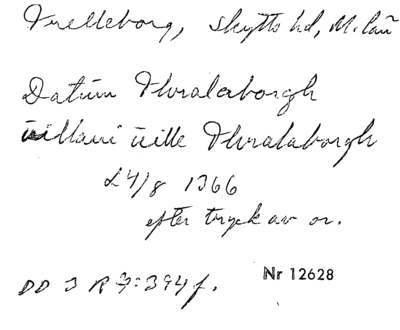 Trelleborg, Skytts hd, M. län
Datum Thralaborgh
villani ville Thralaborgh
24/8 1366
efter tryck av or.
DD 3 R 7:394 f.
Nr 12628